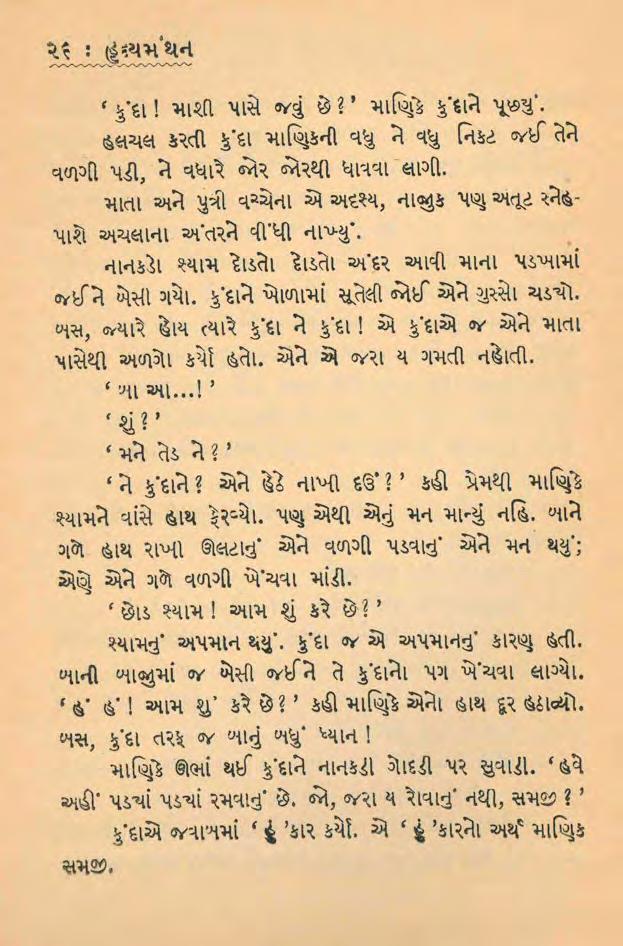 ૨૬ : હૃદયમંથન
‘ કુંદા ! માશી પાસે જવું છે ? ’ માણિકે કુંદાને પૂછ્યું.
હલચલ કરતી કુંદા માણિકની વધુ ને વધુ નિકટ જઈ તેને
વળગી પડી, ને વધારે જોર જોરથી ધાવવા લાગી.
માતા અને પુત્રી વચ્ચેના એ અદશ્ય, નાજુક પણ અતૂટ સ્નેહ-
પાશે અચલાના અંતરને વીંધી નાખ્યું.
નાનકડો શ્યામ દોડતો દોડતો અંદર આવી માના પડખામાં
જઈને બેસી ગયો. કુંદાને ખોળામાં સૂતેલી જોઈ એને ગુસ્સો ચડ્યો.
બસ, જ્યારે હોય ત્યારે કુંદા ને કુંદા ! એ કુંદાએ જ એને માતા
પાસેથી અળગો કર્યો હતો. એને એ જરા ય ગમતી નહોતી.
‘ બા આ...! ’
‘ શું ? ’
‘ મને તેડ ને ? ’
‘ ને કુંદાને ? એને હેઠે નાખી દઉં ? ’ કહી પ્રેમથી માણિકે
શ્યામને વાંસે હાથ ફેરવ્યો. પણ એથી એનું મન માન્યું નહિ. બાને
ગળે હાથ રાખી ઊલટાનું એને વળગી પડવાનું એને મન થયું;
એણે એને ગળે વળગી ખેંચવા માંડી.
‘ છોડ શ્યામ ! આમ શું કરે છે ? ’
શ્યામનું અપમાન થયું. કુંદા જ એ અપમાનનું કારણ હતી.
બાની બાજુમાં જ બેસી જઈને તે કુંદાનો પગ ખેંચવા લાગ્યો.
‘ હં હં ! આમ શું કરે છે ? ’ કહી માણિકે એનો હાથ દૂર હઠાવ્યો.
બસ, કુંદા તરફ જ બાનું બધું ધ્યાન !
માણિકે ઊભાં થઈ કુંદાને નાનકડી ગોદડી પર સુવાડી. ‘ હવે
અહીં પડ્યાં પડ્યાં રમવાનું છે. જો, જરા ય રોવાનું નથી, સમજી ? ’
કુંદાએ જવાબમાં ‘ હું ’કાર કર્યો. એ ‘ હું ’કારનો અર્થ માણિક
સમજી.